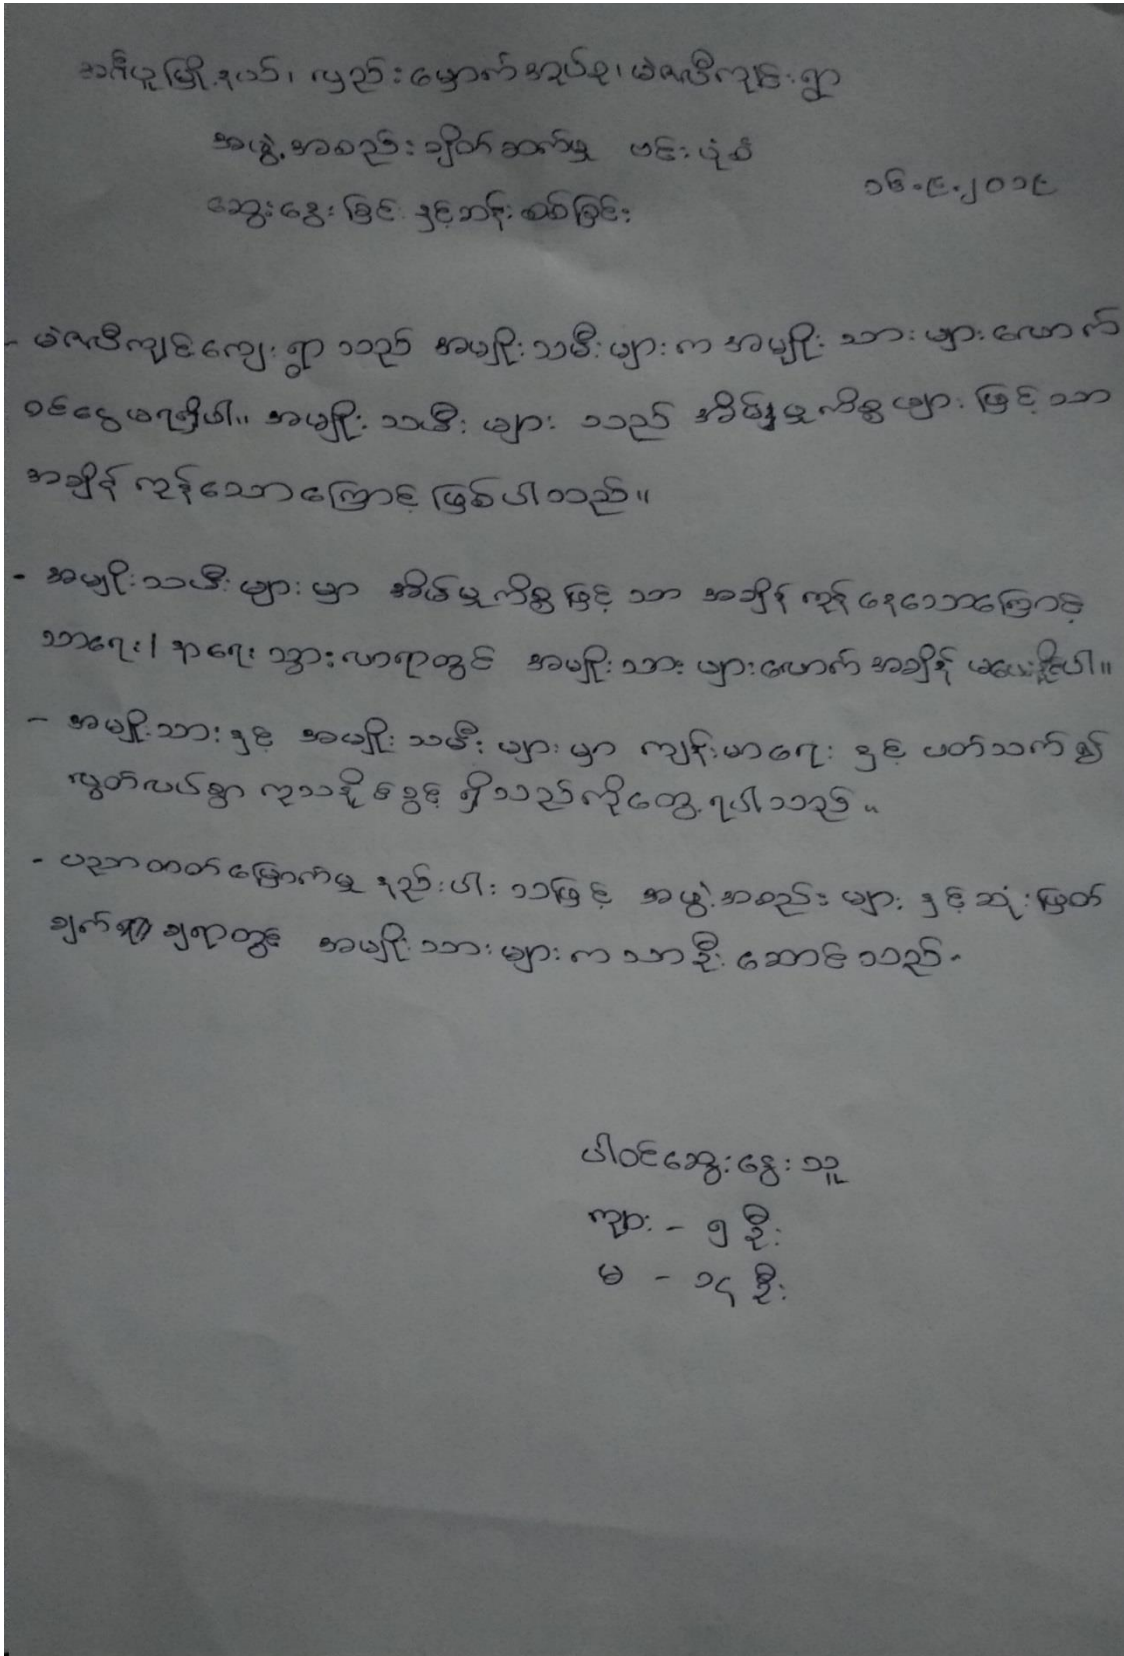 အင်္ဂပူမြို့နယ်၊ လှည်းမှောက်အုပ်စု၊ မဲဇလီကျင်းရွာ
အဖွဲ့အစည်းချိတ်ဆက်မှု ဗင်းပုံစံ
၁၆.၉.၂၀၁၉
ဆွေးနွေးခြင်း နှင့်ဆန်းစစ်ခြင်း
- မဲဇလီကျင်းကျေးရွာသည် အမျိုးသမီးများက အမျိုးသားများလောက်
ဝင်ငွေမရရှိပါ။ အမျိုးသမီးများသည် အိမ်မှုကိစ္စများဖြင့်သာ
အချိန်ကုန်သောကြောင့်ဖြစ်ပါသည်။
- အမျိုးသမီးများမှာ အိမ်မှုကိစ္စဖြင့်သာ အချိန်ကုန်နေသောကြောင့်
သာရေး/နာရေး သွားလာရာတွင် အမျိုးသားများလောက်အချိန်မပေးနိုင်ပါ။
- အမျိုးသားနှင့် အမျိုးသမီးများမှာ ကျန်းမာရေးနှင့်ပတ်သက်၍
လွတ်လပ်စွာကုသနိုင်ခွင့်ရှိသည်ကိုတွေ့ရပါသည်။
- ပညာတတ်မြောက်မှုနည်းပါးသဖြင့် အဖွဲ့အစည်းများနှင့်ဆုံးဖြတ်
ချက်ချရာတွင် အမျိုးသားများကသာဦးဆောင်သည်.
ပါဝင်ဆွေးနွေးသူ
ကျား - ၅ ဦး
မ - ၁၄ ဦး